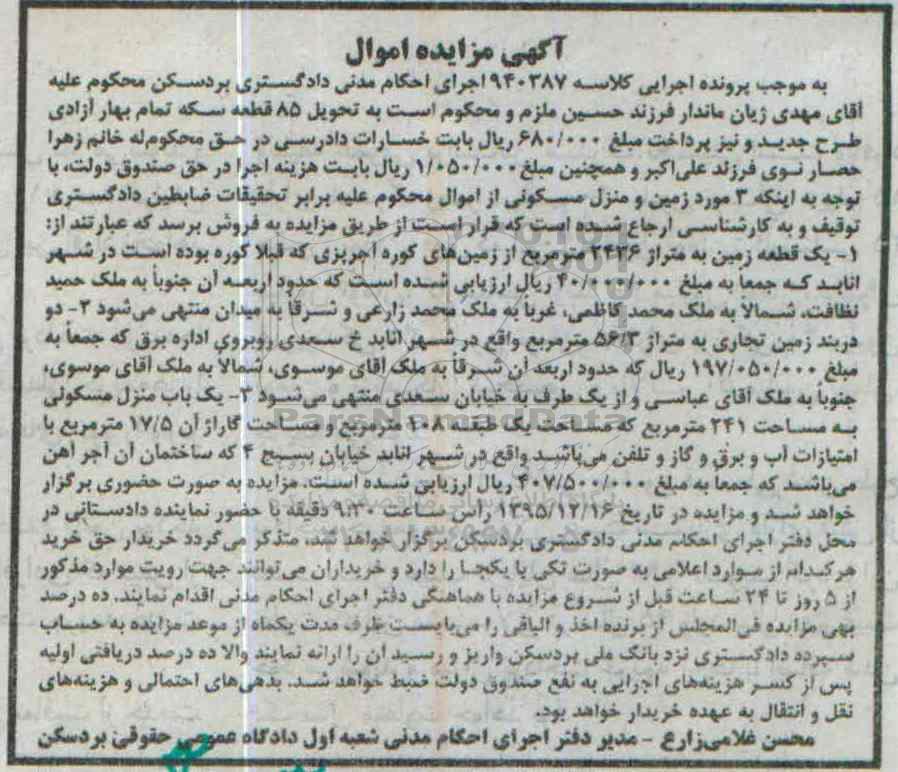 آگهی مزایده اموال
به موجب پرونده اجرایی کلاسه ۹۴۰۳۸۷ اجرای احکام مدنی دادگستری بردسکن محکوم علیه
آقای مهدی ژیان ماندار فرزند حسین ملزم و محکوم است به تحویل ۸۵ قطعه سکه تمام بهار آزادی
طرح جدید و نیز پرداخت مبلغ ۶۸۰/۰۰۰ ریال بابت خسارات دادرسی در حق محکوم‌له خانم زهرا
حصار نوی فرزند علی‌اکبر و همچنین مبلغ ۱/۰۵۰/۰۰۰ ریال بابت هزینه اجرا در حق صندوق دولت، با
توجه به اینکه ۳ مورد زمین و منزل مسکونی از اموال محکوم علیه برابر تحقیقات ضابطین دادگستری
توقیف و به کارشناسی ارجاع شده است که قرار است از طریق مزایده به فروش برسد که عبارتند از:
۱- یک قطعه زمین به متراژ ۲۴۲۶ مترمربع از زمین‌های کوره آجرپزی که قبلا کوره بوده است در شهر
انابد که جمعاً به مبلغ ۴۰/۰۰۰/۰۰۰ ریال ارزیابی شده است که حدود اربعه آن جنوباً به ملک حمید
نظافت، شمالاً به ملک محمد کاظمی، غرباً به ملک محمد زارعی و شرقاً به میدان منتهی می‌شود ۲- دو
دربند زمین تجاری به متراژ ۵۶/۳ مترمربع واقع در شهر انابد خ سعدی روبروی اداره برق که جمعاً به
مبلغ ۱۹۷/۰۵۰/۰۰۰ ریال که حدود اربعه آن شرقاً به ملک آقای موسوی، شمالاً به ملک آقای موسوی،
جنوباً به ملک آقای عباسی و از یک طرف به خیابان سعدی منتهی می‌شود ۳- یک باب منزل مسکونی
به مساحت ۲۴۱ مترمربع که مساحت یک طبقه ۱۰۸ مترمربع و مساحت گاراژ آن ۱۷/۵ مترمربع با
امتیازات آب و برق و گاز و تلفن می‌باشد واقع در شهر انابد خیابان بسیج ۴ که ساختمان آن آجر آهن
می‌باشد که جمعاً به مبلغ ۴۰۷/۵۰۰/۰۰۰ ریال ارزیابی شده است. مزایده به صورت حضوری برگزار
خواهد شد و مزایده در تاریخ ۱۳۹۵/۱۲/۱۶ راس ساعت ۹:۳۰ دقیقه با حضور نماینده دادستانی در
محل دفتر اجرای احکام مدنی دادگستری بردسکن برگزار خواهد شد، متذکر می‌گردد خریدار حق خرید
هر کدام از موارد اعلامی به صورت تکی یا یکجا را دارد و خریداران می‌توانند جهت رویت موارد مذکور
از ۵ روز تا ۲۴ ساعت قبل از شروع مزایده با هماهنگی دفتر اجرای احکام مدنی اقدام نمایند. ده درصد
بهی مزایده فی‌المجلس از برنده اخذ و الباقی را می‌بایست ظرف مدت یکماه از موعد مزایده به حساب
سپرده دادگستری نزد بانک ملی بردسکن واریز و رسید آن را ارائه نمایند والا ده درصد دریافتی اولیه
پس از کسر هزینه‌های اجرایی به نفع صندوق دولت ضبط خواهد شد. بدهی‌های احتمالی و هزینه‌های
نقل و انتقال به عهده خریدار خواهد بود.
محسن غلامی‌زارع - مدیر دفتر اجرای احکام مدنی شعبه اول دادگاه عمومی حقوقی بردسکن
ParsNamadData